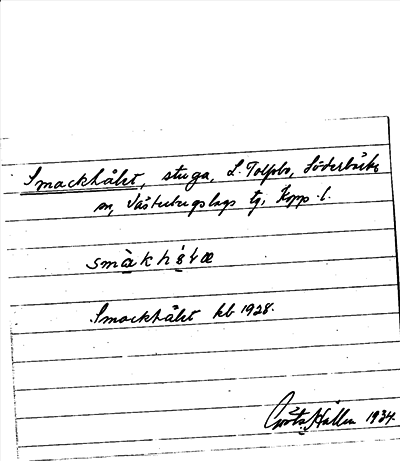 Smackhålet, stuga, L. Tolfsbo, Söderbärke
sn, Västerbergslags tg, Kopp. l.
smàkhɷ́ɫæ
Smackhålet kb 1928.
Gösta Hallén 1934.